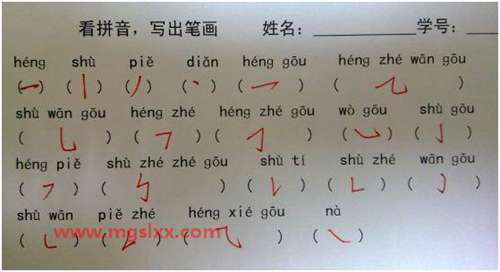 看拼音，写出笔画 姓名：__________ 学号：____
héng shù piě diǎn héng gōu héng zhé wān gōu
(㇐) (㇑) (㇓) (㇔) (㇖) (㇈)
shù wān gōu héng zhé héng zhé gōu wò gōu shù gōu
(㇟) (㇕) (㇆) (㇃) (㇚)
héng piě shù zhé zhé gōu shù tí shù zhé wān gōu
(㇇) (㇉) (㇙) (㇗) (㇁)
shù wān piě zhé héng xié gōu nà
(㇄) (㇜) (⺄) (㇏)
www.mgslxx.com